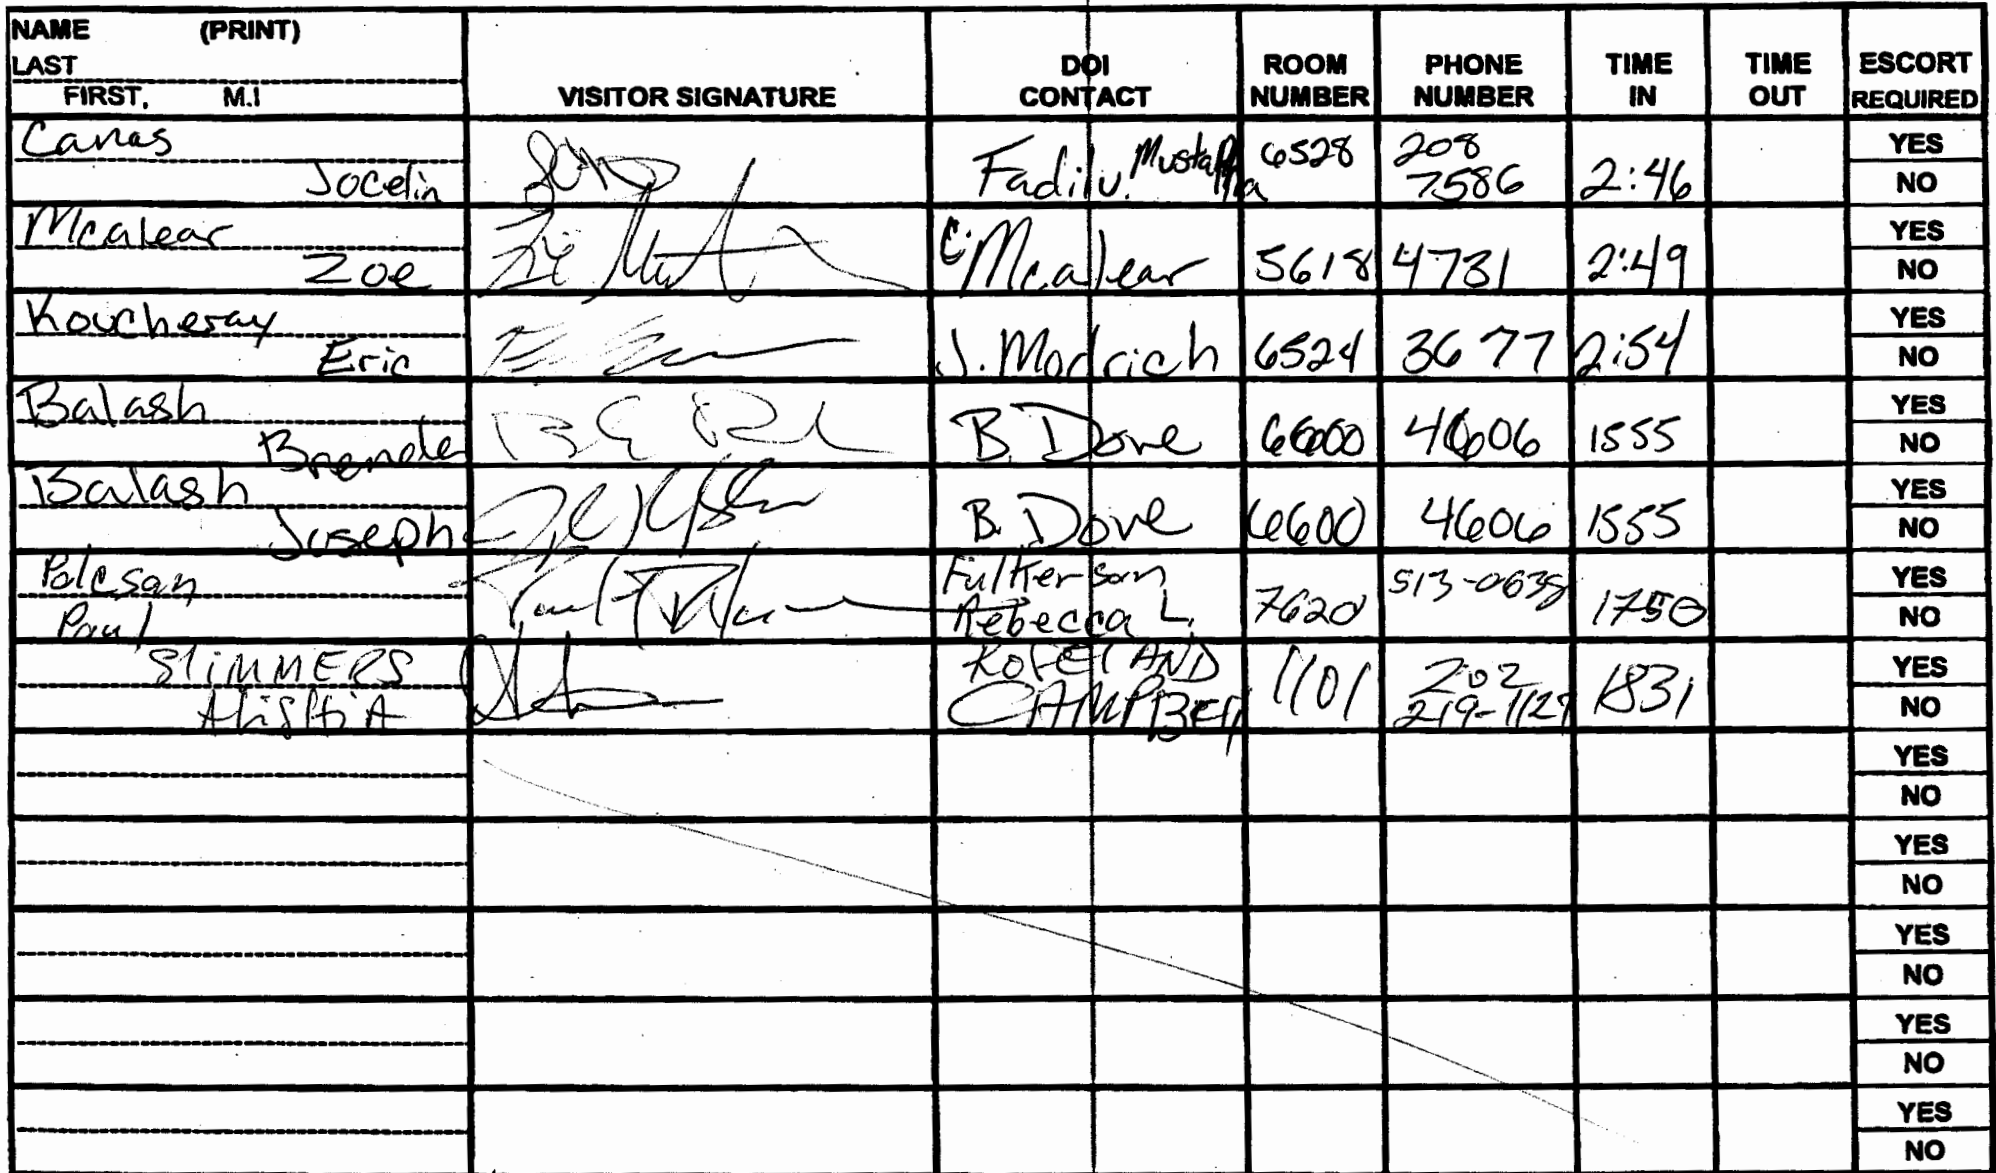 NAME (PRINT)
LAST
FIRST, M.I
VISITOR SIGNATURE
DOI
CONTACT
ROOM
NUMBER
PHONE
NUMBER
TIME
IN
TIME
OUT
ESCORT
REQUIRED
Canas
Jocelin
Mustapha
6528
208
7586
2:46
YES
NO
Mcalear
Zoe
C. Mcalear
5618
4731
2:49
YES
NO
Koucheray
Eric
J. Modrich
6524
3677
2:54
YES
NO
Balash
Brenda
B. Dove
6600
4606
1555
YES
NO
Balash
Joseph
B. Dove
6600
4606
1555
YES
NO
Paul
Fulkerson
Rebecca L.
7620
1750
YES
NO
1101
202
1831
YES
NO
YES
NO
YES
NO
YES
NO
YES
NO
YES
NO